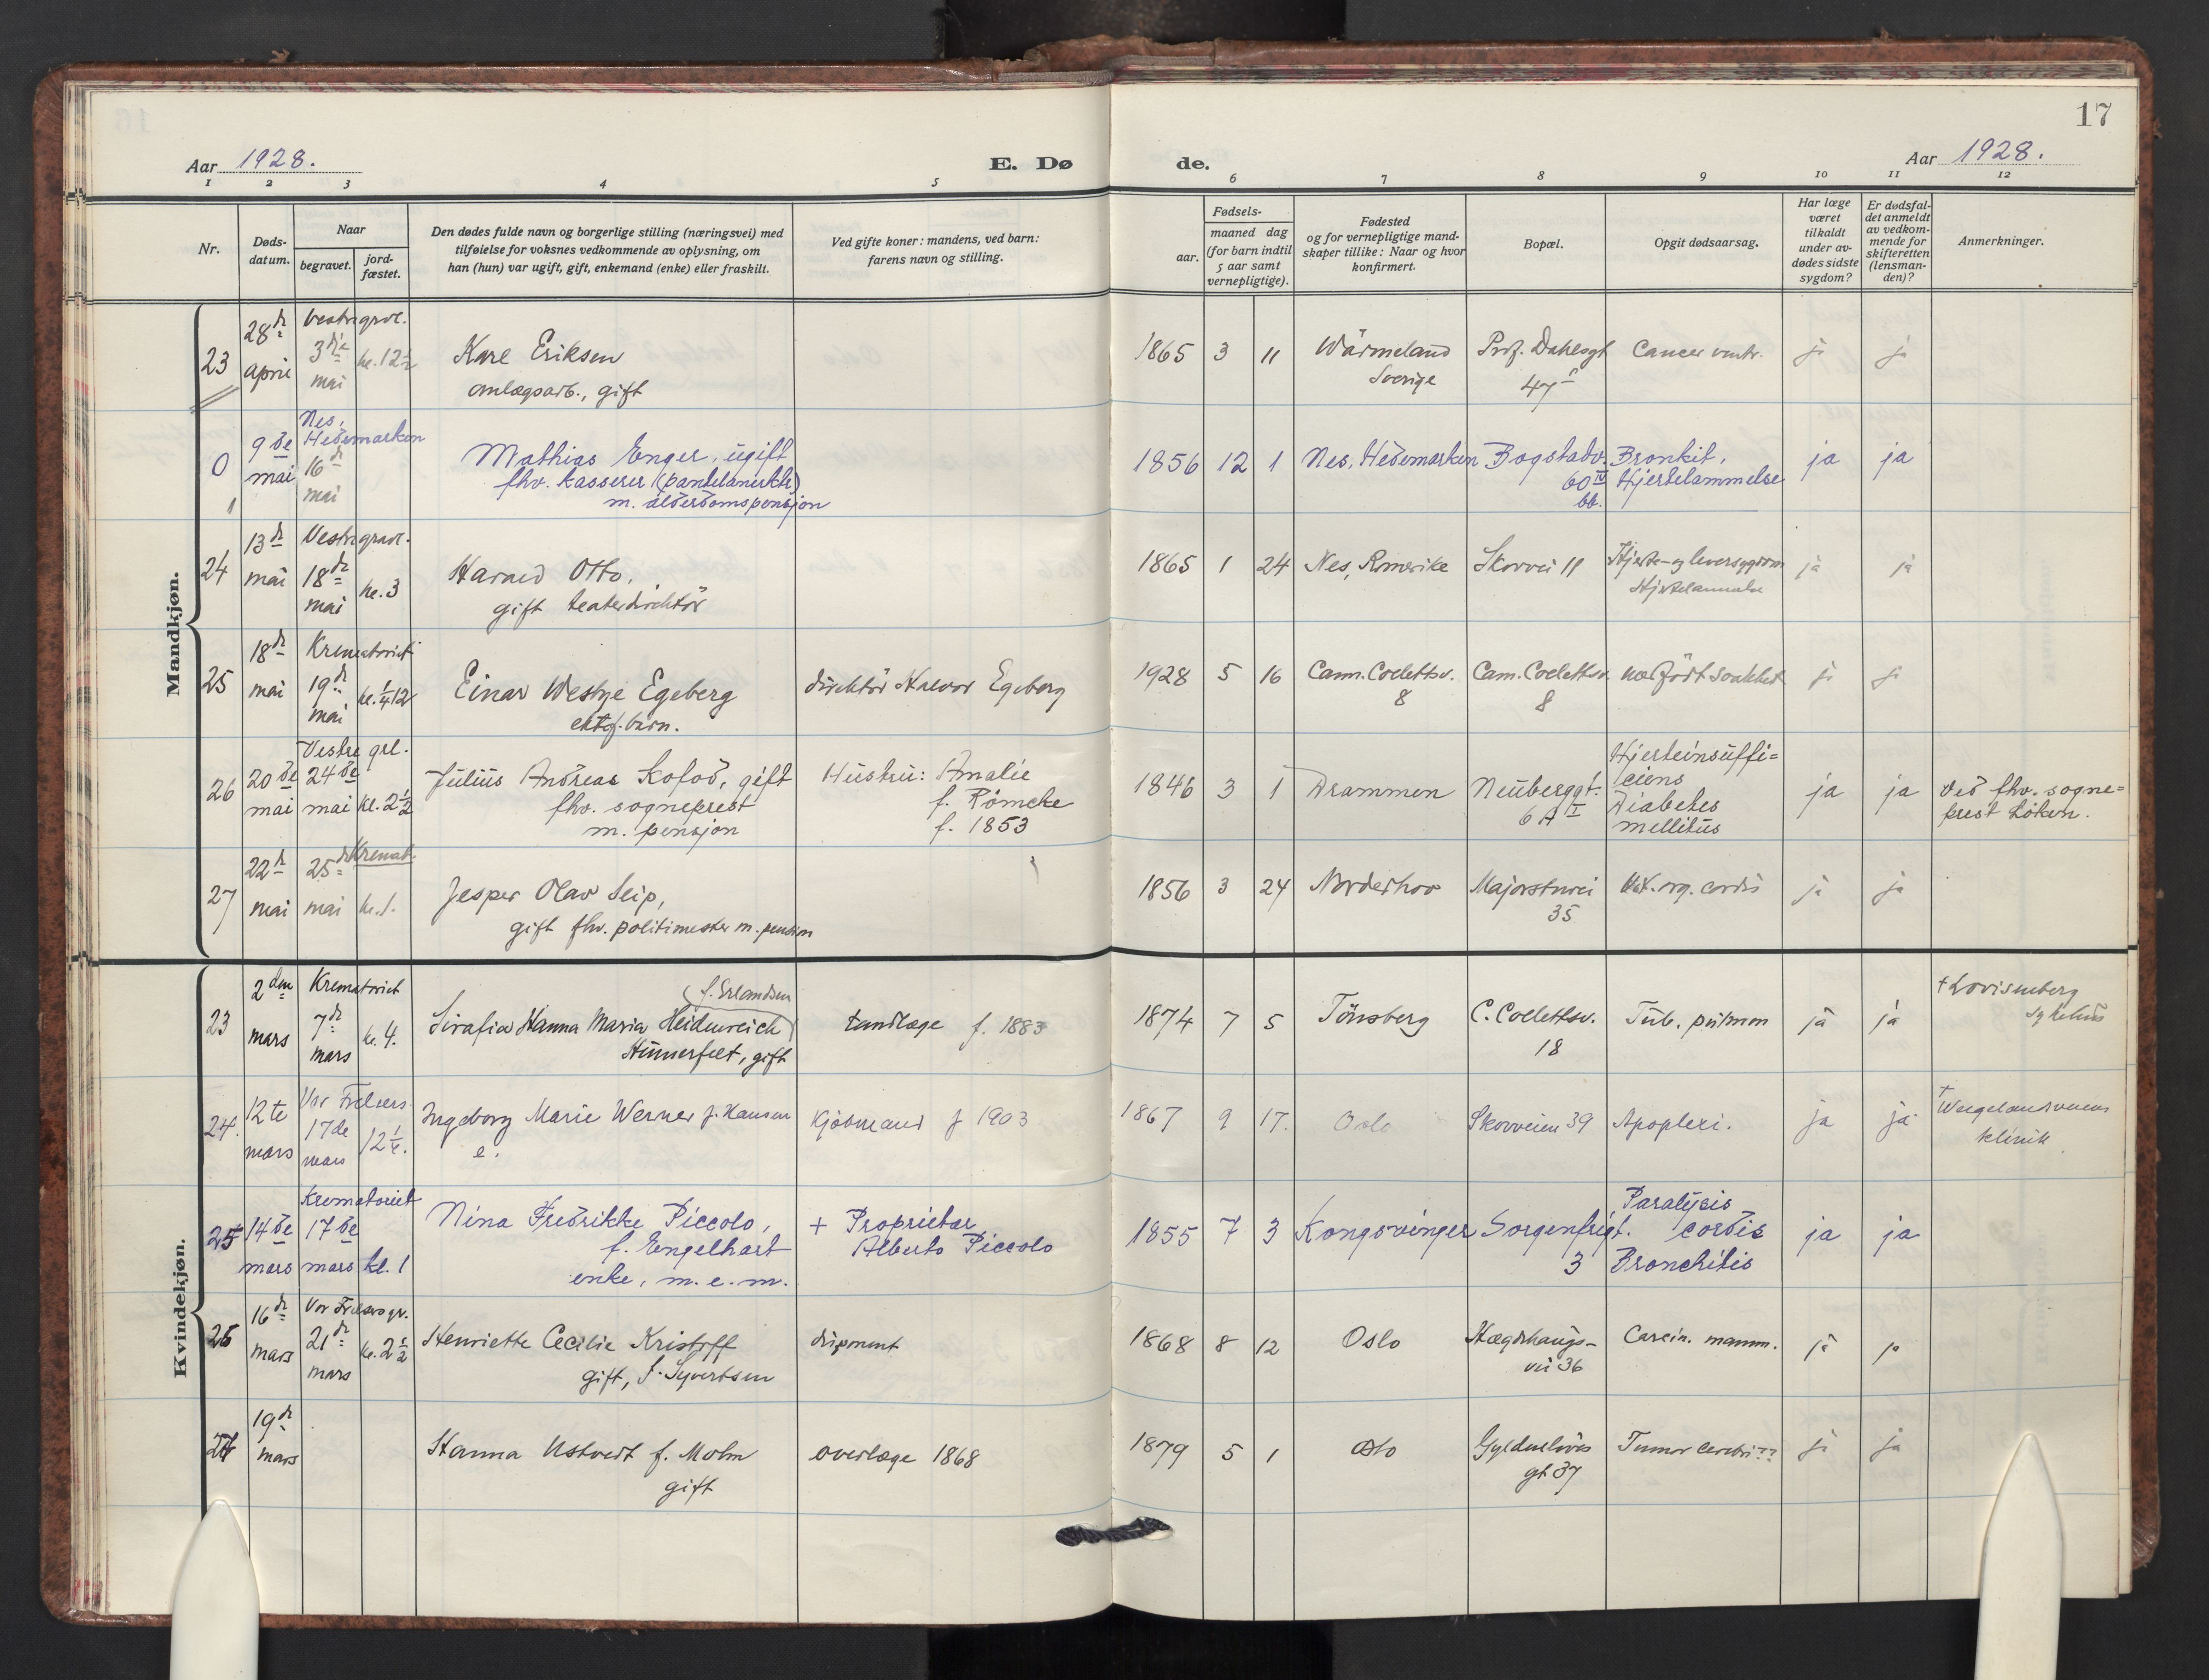 17
Aar 1928.
E. Dø
de.
Aar 1928.
1 2 3 4 5 6 7 8 9 10 11 12
Nr.
Døds-
datum.
Naar
begravet.
jord-
fæstet.
Den dødes fulde navn og borgerlige stilling (næringsvei) med
tilføielse for voksnes vedkommende av oplysning, om
han (hun) var ugift, gift, enkemand (enke) eller fraskilt.
Ved gifte koner: mandens, ved barn:
farens navn og stilling.
Fødsels-
aar.
maaned dag
(for barn indtil
5 aar samt
vernepligtige).
Fødested
og for vernepligtige mand-
skaper tillike: Naar og hvor
konfirmert.
Bopæl.
Opgit dødsaarsag.
Har læge
været
tilkaldt
under av-
dødes sidste
sygdom?
Er dødsfal-
det anmeldt
av vedkom-
mende for
skifteretten
(lensman-
den)?
Anmerkninger.
Mandkjøn.
23
28de
april
Vestre grvl.
3dje
mai
kl. 12½
Karl Eriksen
anlægsarb., gift
1865 3 11
Wärmeland
Sverige
Prof. Dahlsgt
47
Cancer ventr.
ja ja
0
9de
mai
Nes,
Hedemarken
16de
mai
Mathias Enger, ugift
fhv. kasserer (pantelånerktr)
m. alderdomspensjon
1856 12 1
Nes, Hedemarken
Bogstadv.
60 IV
bb.
Bronkit,
Hjertelammelse
ja ja
24
13de
mai
Vestre gravl.
18de
mai
kl. 3
Harald Otto,
gift teaterdirektör
1865 1 24
Nes, Romerike
Skovvei 11
Hjerte- og leversygdom
Hjertelammelse
ja ja
25
18de
mai
Krematoriet
19de
mai
kl. ¼12
Einar Westye Egeberg
ektef. barn.
direktör Halvor Egeberg
1928 5 16
Cam. Collettsv.
8
Cam. Collettsv.
8
ja ja
26
20de
mai
Vestre grl.
24de
mai
kl. 2½
Julius Andreas Kofod, gift
fhv. sogneprest
m. pensjon
Hustru: Amalie
f. Römcke
f. 1853
1846 3 1
Drammen
Neuberggt.
6 A I
Hjerteinsuffi=
ciens
Diabetes
mellitus
ja ja
Ved fhv. sogne=
prest Löken.
27
22de
mai
Kremat.
25de
mai
kl. 1.
Jesper Olav Seip,
gift fhv. politimester m. pension
1856 3 24
Norderhov
Majorstuvei
35
Vit. org. cordis
ja ja
Kvindekjøn.
23
2den
mars
Krematoriet
7de
mars
kl. 4.
f. Erlandsen
Serafia Hanna Maria Heidenreich
Hunerfelt, gift
tandlæge f. 1883
1874 7 5
Tönsberg
C. Collettsv.
18
Tub. pulmon
ja ja
+ Lovisenberg
Sykehus
24.
12te
mars
Vor Frelsers
17de
mars
12¼.
Ingeborg Marie Werner f. Hansen
e.
Kjøbmand f 1903
1867 9 17.
Oslo
Skovveien 39
Apoplexi.
ja ja
+ Wergelandsveiens
klinik
25
14de
mars
Krematoriet
17de
mars
kl. 1
Nina Fredrikke Piccolo,
f. Engelhart
enke, m. e. m.
+ Proprietær
Alberto Piccolo
1855 7 3
Kongsvinger
Sorgenfrigt.
3
Paralysis
cordis
Bronchitis
ja ja
26
16de
mars
Vor Frelsers gr.
21de
mars
kl. 2½
Henriette Cecilie Kristoff
gift, f. Syvertsen
disponent
1868 8 12
Oslo
Hægdehaugs-
vei 36
Carcin. mamm.
ja ja
27
19de
mars
Hanna Ustvedt f. Mohn
gift
overlæge 1868
1879 5 1
Oslo
Gyldenlöves
gt 37
Tumor cerebri??
ja ja